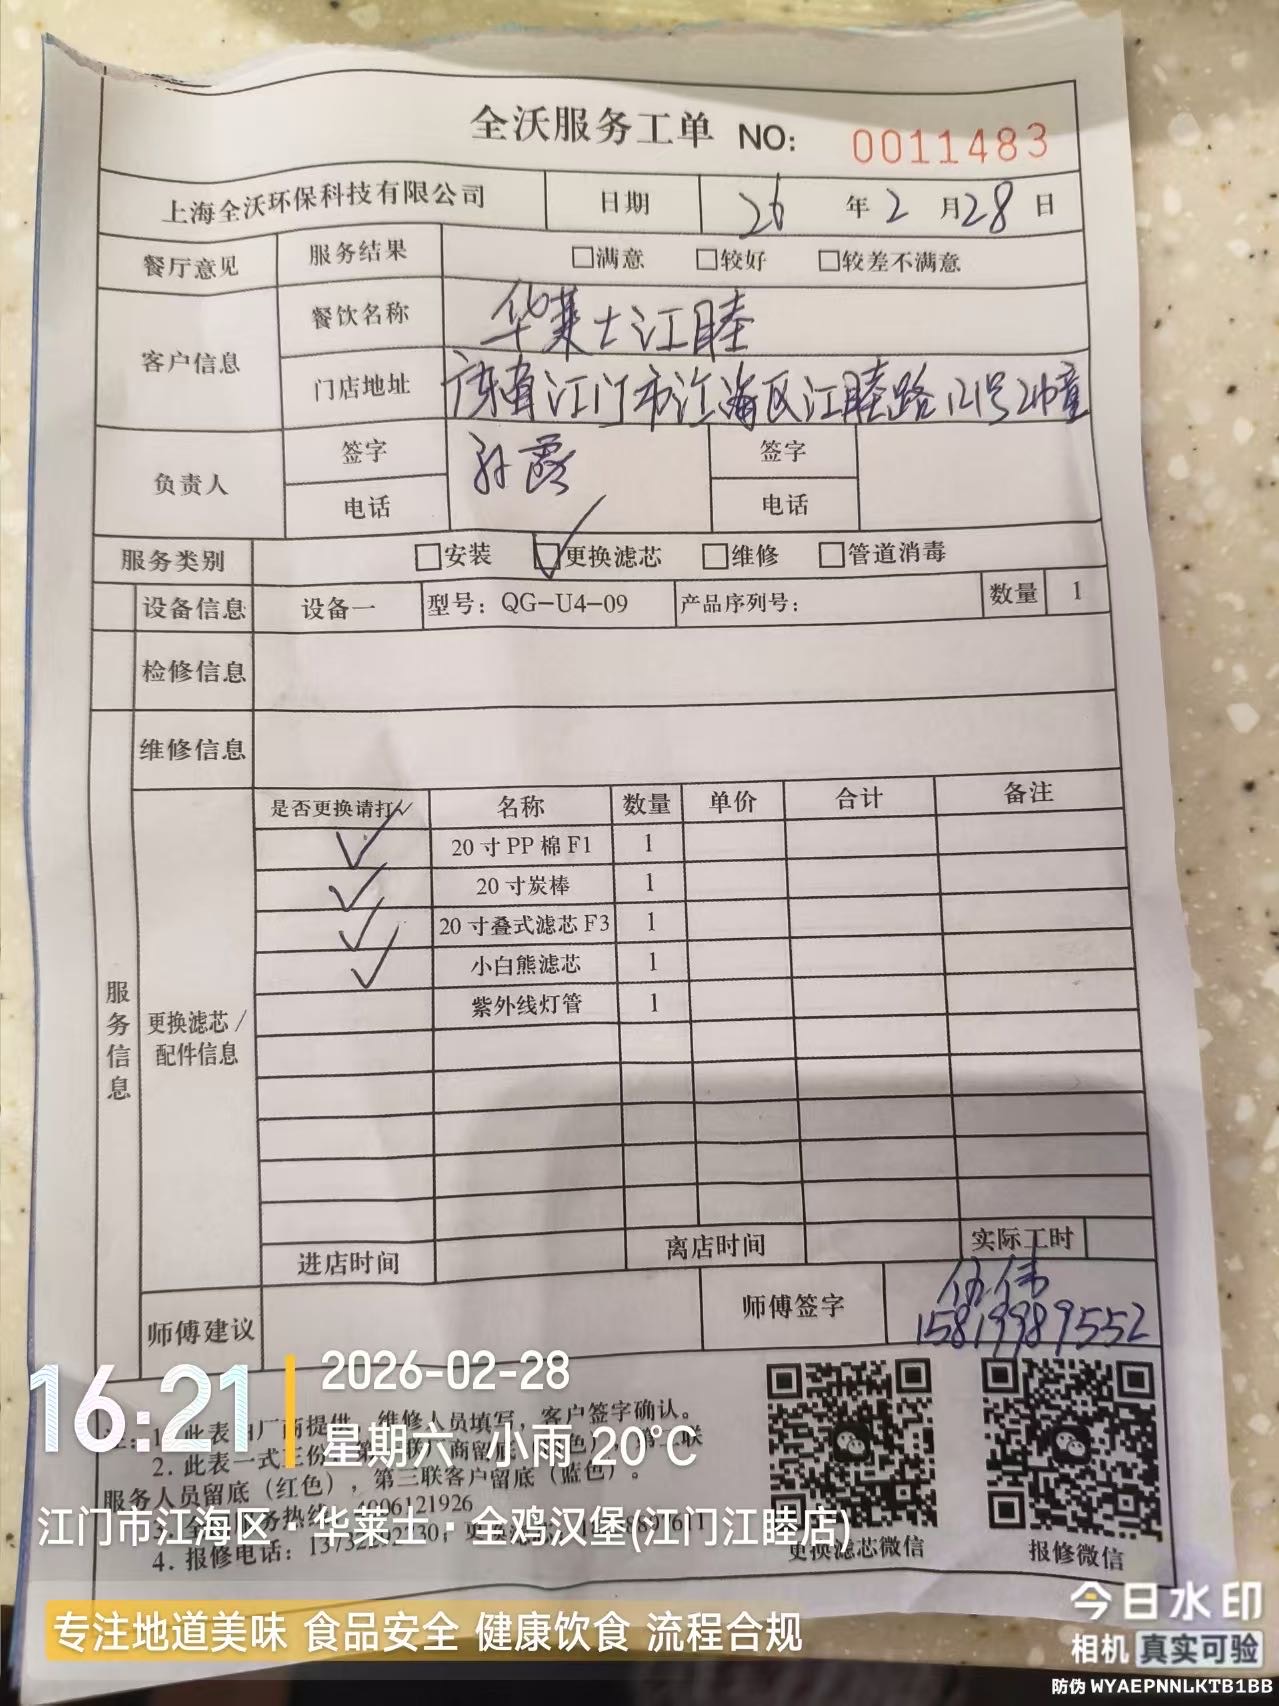 全沃服务工单 NO: 0011483
上海全沃环保科技有限公司 日期 26 年 2 月 28 日
餐厅意见 服务结果 □满意 □较好 □较差不满意
客户信息 餐饮名称 华莱士江睦
门店地址 广东省江门市江海区江睦路121号2幢
负责人 签字 孙露 签字
电话 电话
服务类别 □安装 ☑更换滤芯 □维修 □管道消毒
设备信息 设备一 型号：QG-U4-09 产品序列号： 数量 1
检修信息
维修信息
服务信息 更换滤芯/配件信息
是否更换请打✓ 名称 数量 单价 合计 备注
✓ 20寸PP棉F1 1
✓ 20寸炭棒 1
✓ 20寸叠式滤芯F3 1
✓ 小白熊滤芯 1
紫外线灯管 1
进店时间 离店时间 实际工时
师傅建议 师傅签字 伍伟
15819989552
16:21 2026-02-28
星期六 小雨 20°C
维修人员填写，客户签字确认。
2. 此表一式三份
服务人员留底（红色），第三联客户留底（蓝色）。
4006121926
4. 报修电话：
江门市江海区·华莱士·全鸡汉堡(江门江睦店)
更换滤芯微信 报修微信
专注地道美味 食品安全 健康饮食 流程合规
今日水印
相机 真实可验
防伪 WYAEPNNLKTB1BB